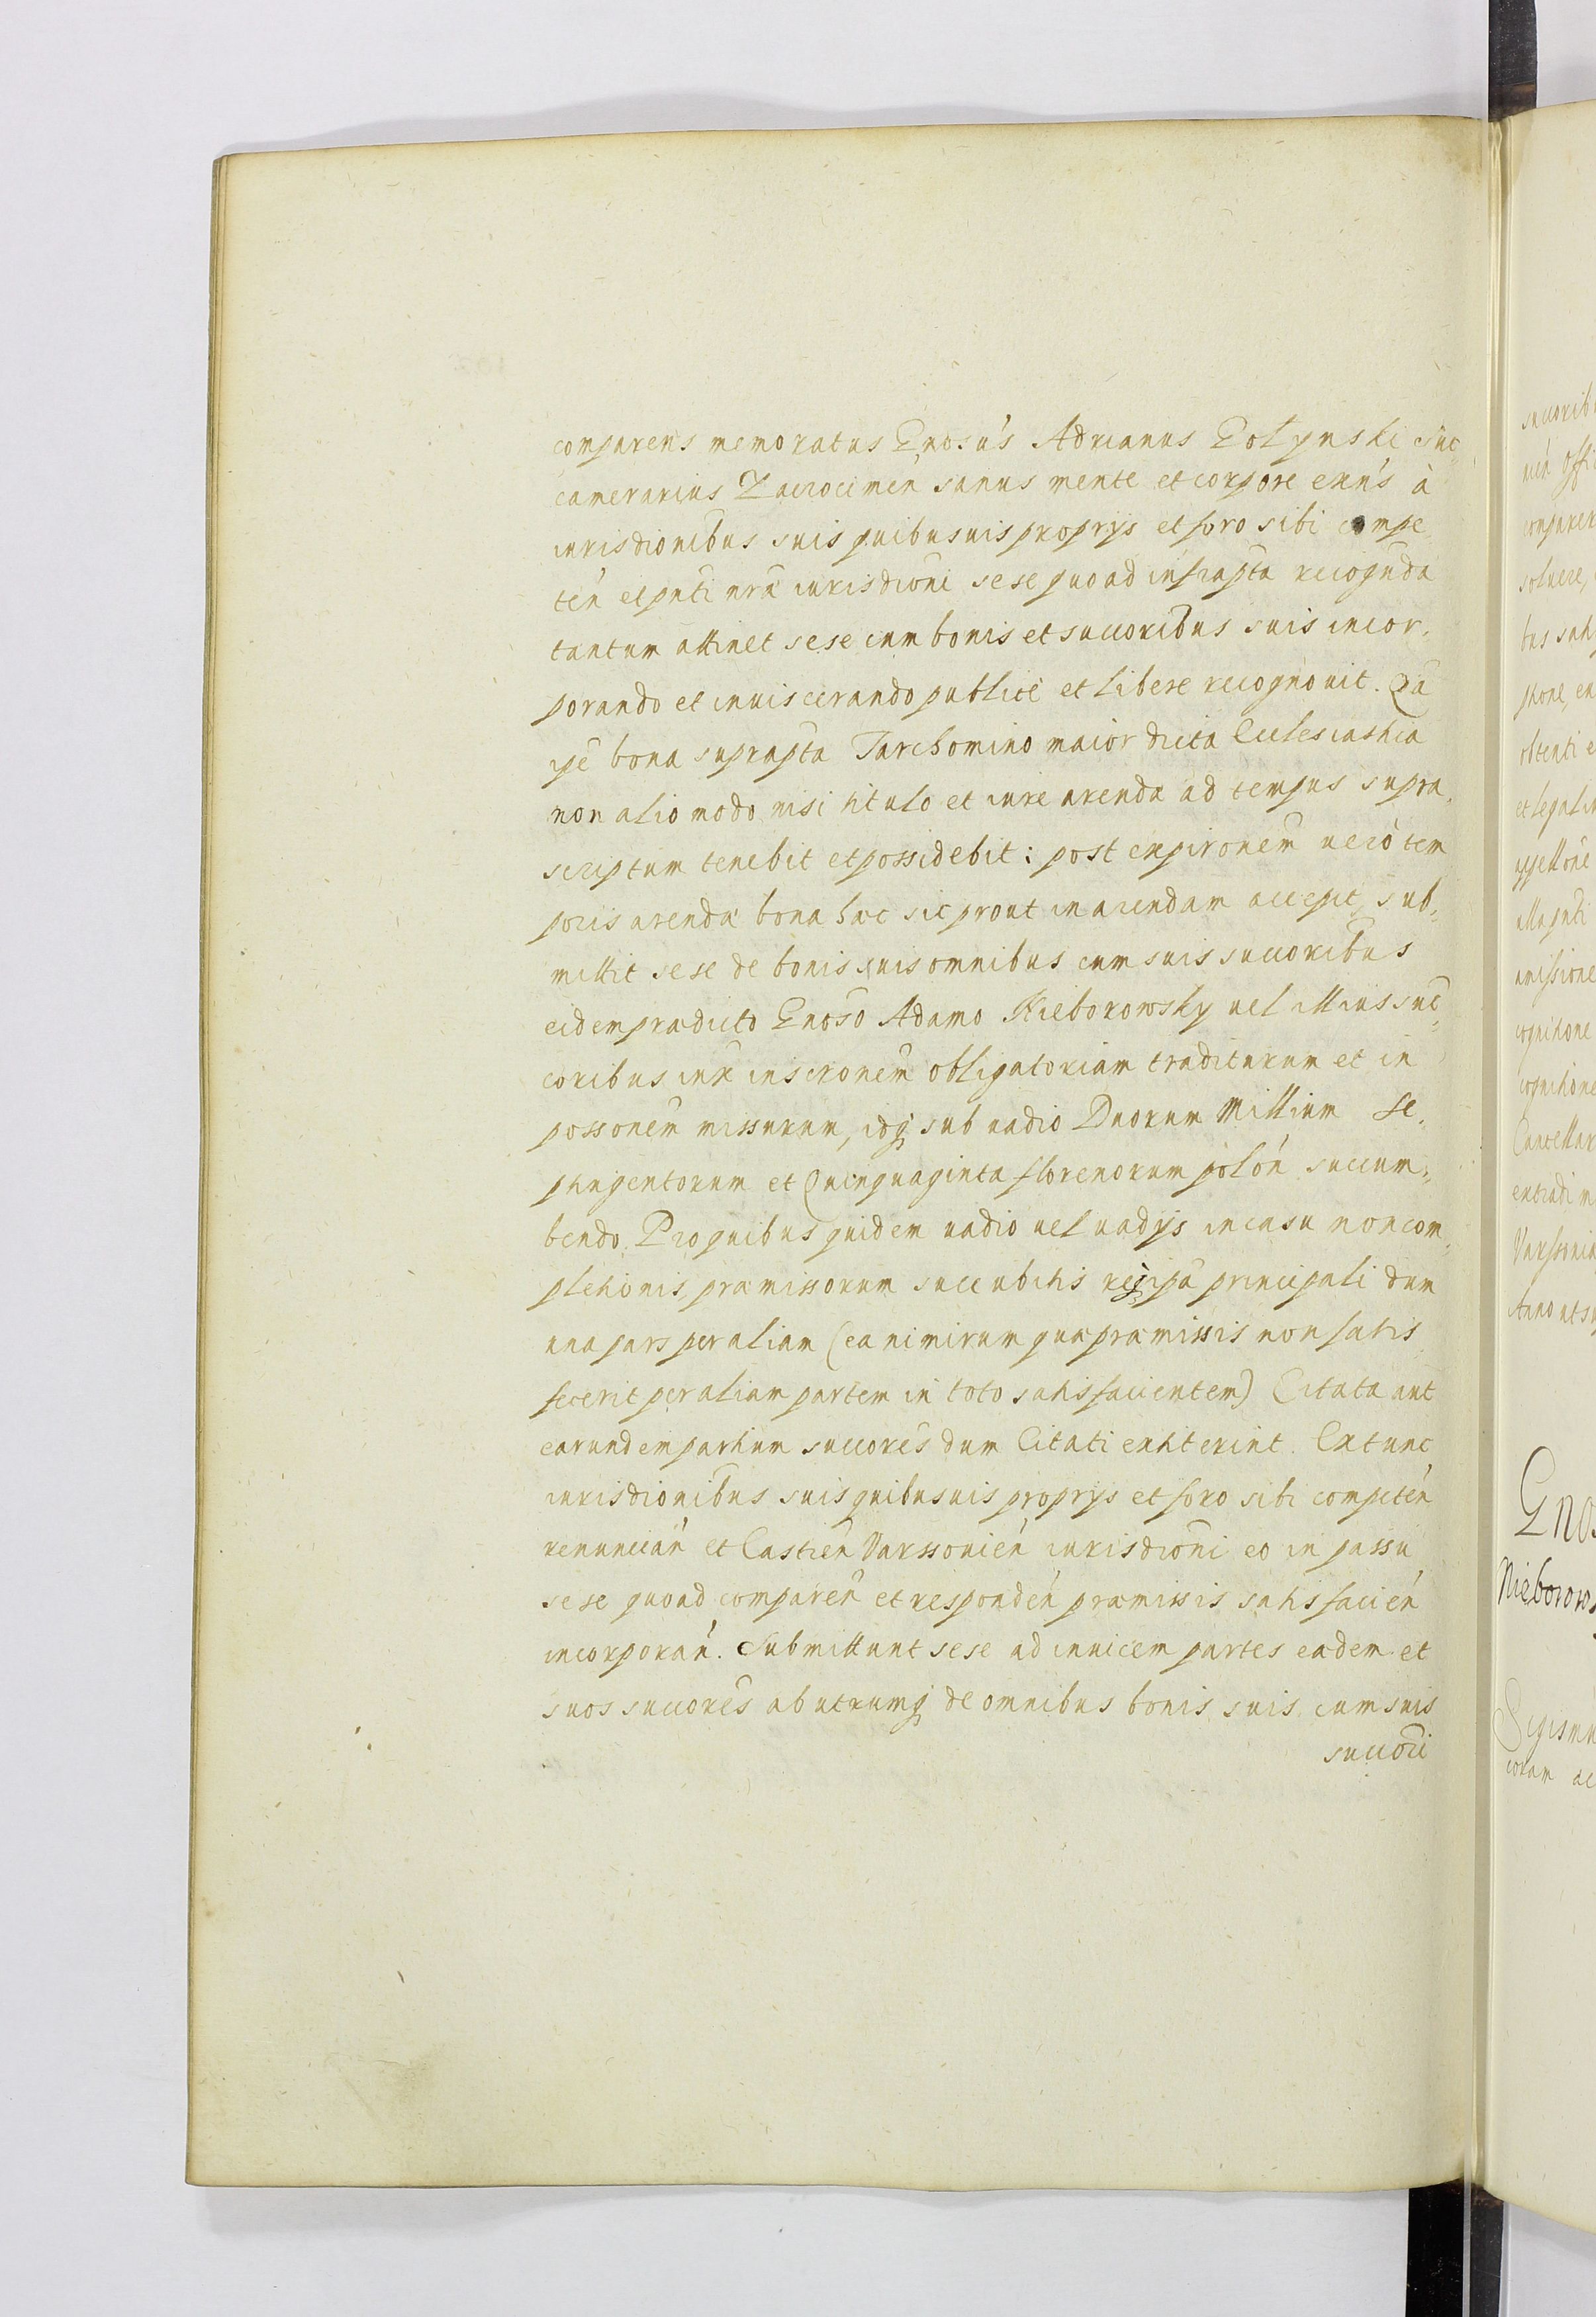 comparens memoratus Gnosús Adrianus Golynski suc
camerarius Zacrocimeń sanus mente et corpore exńs à
iurisdionibus suis quibusuis proprys et foro sibi compe
teń et pnti nrã iurisdioni sese quoad infrapta recognda
tantum attinet sese cum bonis et succoribus suis incor,
porando et inuiscerando publicè et libere recognouit. Qã
ipe bona suprapta Tarchomino maior dicta Ecclesiastica
non alio modo nisi titulo et iure arendæ ad tempus supra,
scriptum tenebit et possidebit: post expironem uerò tem
poris arendæ bona hæc sic prout in arendam accepit, sub,,
mittit sese de bonis suis omnibus cum suis succoribus
eidem prædicto Gnoso Adamo Nieborowsky uel illius suc,,
coribus iux inscronem obligatoriam traditurum et in
possonem missurum, idq sub uadio Duorum Millium Se,
ptingentorum et Quinquaginta florenorum polóń succum,,
bendo. Pro quibus quidem uadio uel uadys in casu non com,,
pletionis præmissorum succubitis reqz ipa principali dum
una pars per aliam (ea nimirum quæ præmissis non satis
fecerit per aliam partem in toto satisfacientem) Citata aut
earundem partium succores dum Citati extiterint. Extunc
iurisdionibus suis quibusuis proprys et foro sibi competeń
renunciań et Castreń Varssouień iurisdioni eo in passu
sese quoad compareń et respondeń præmissis satisfacień
incorporań. Submittunt sese ad inuicem partes eædem et
suos succores ab utrumq de omnibus bonis suis cum suis
succori
Gnos
Nieborows
Sigismu
coram ac